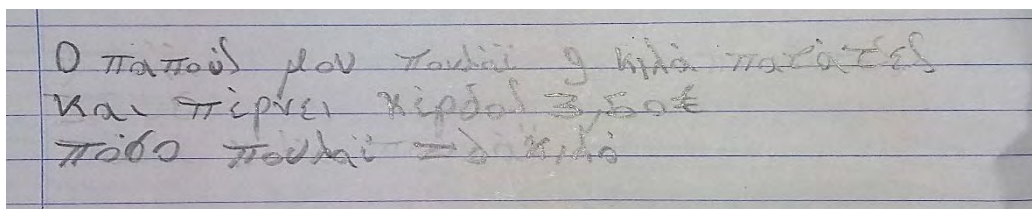 Ο πάπους μου πουλάϊ 9 κιλά πατάτες
και πέρνει κέρδος 3,50€
πόσο πουλάϊ το κιλό